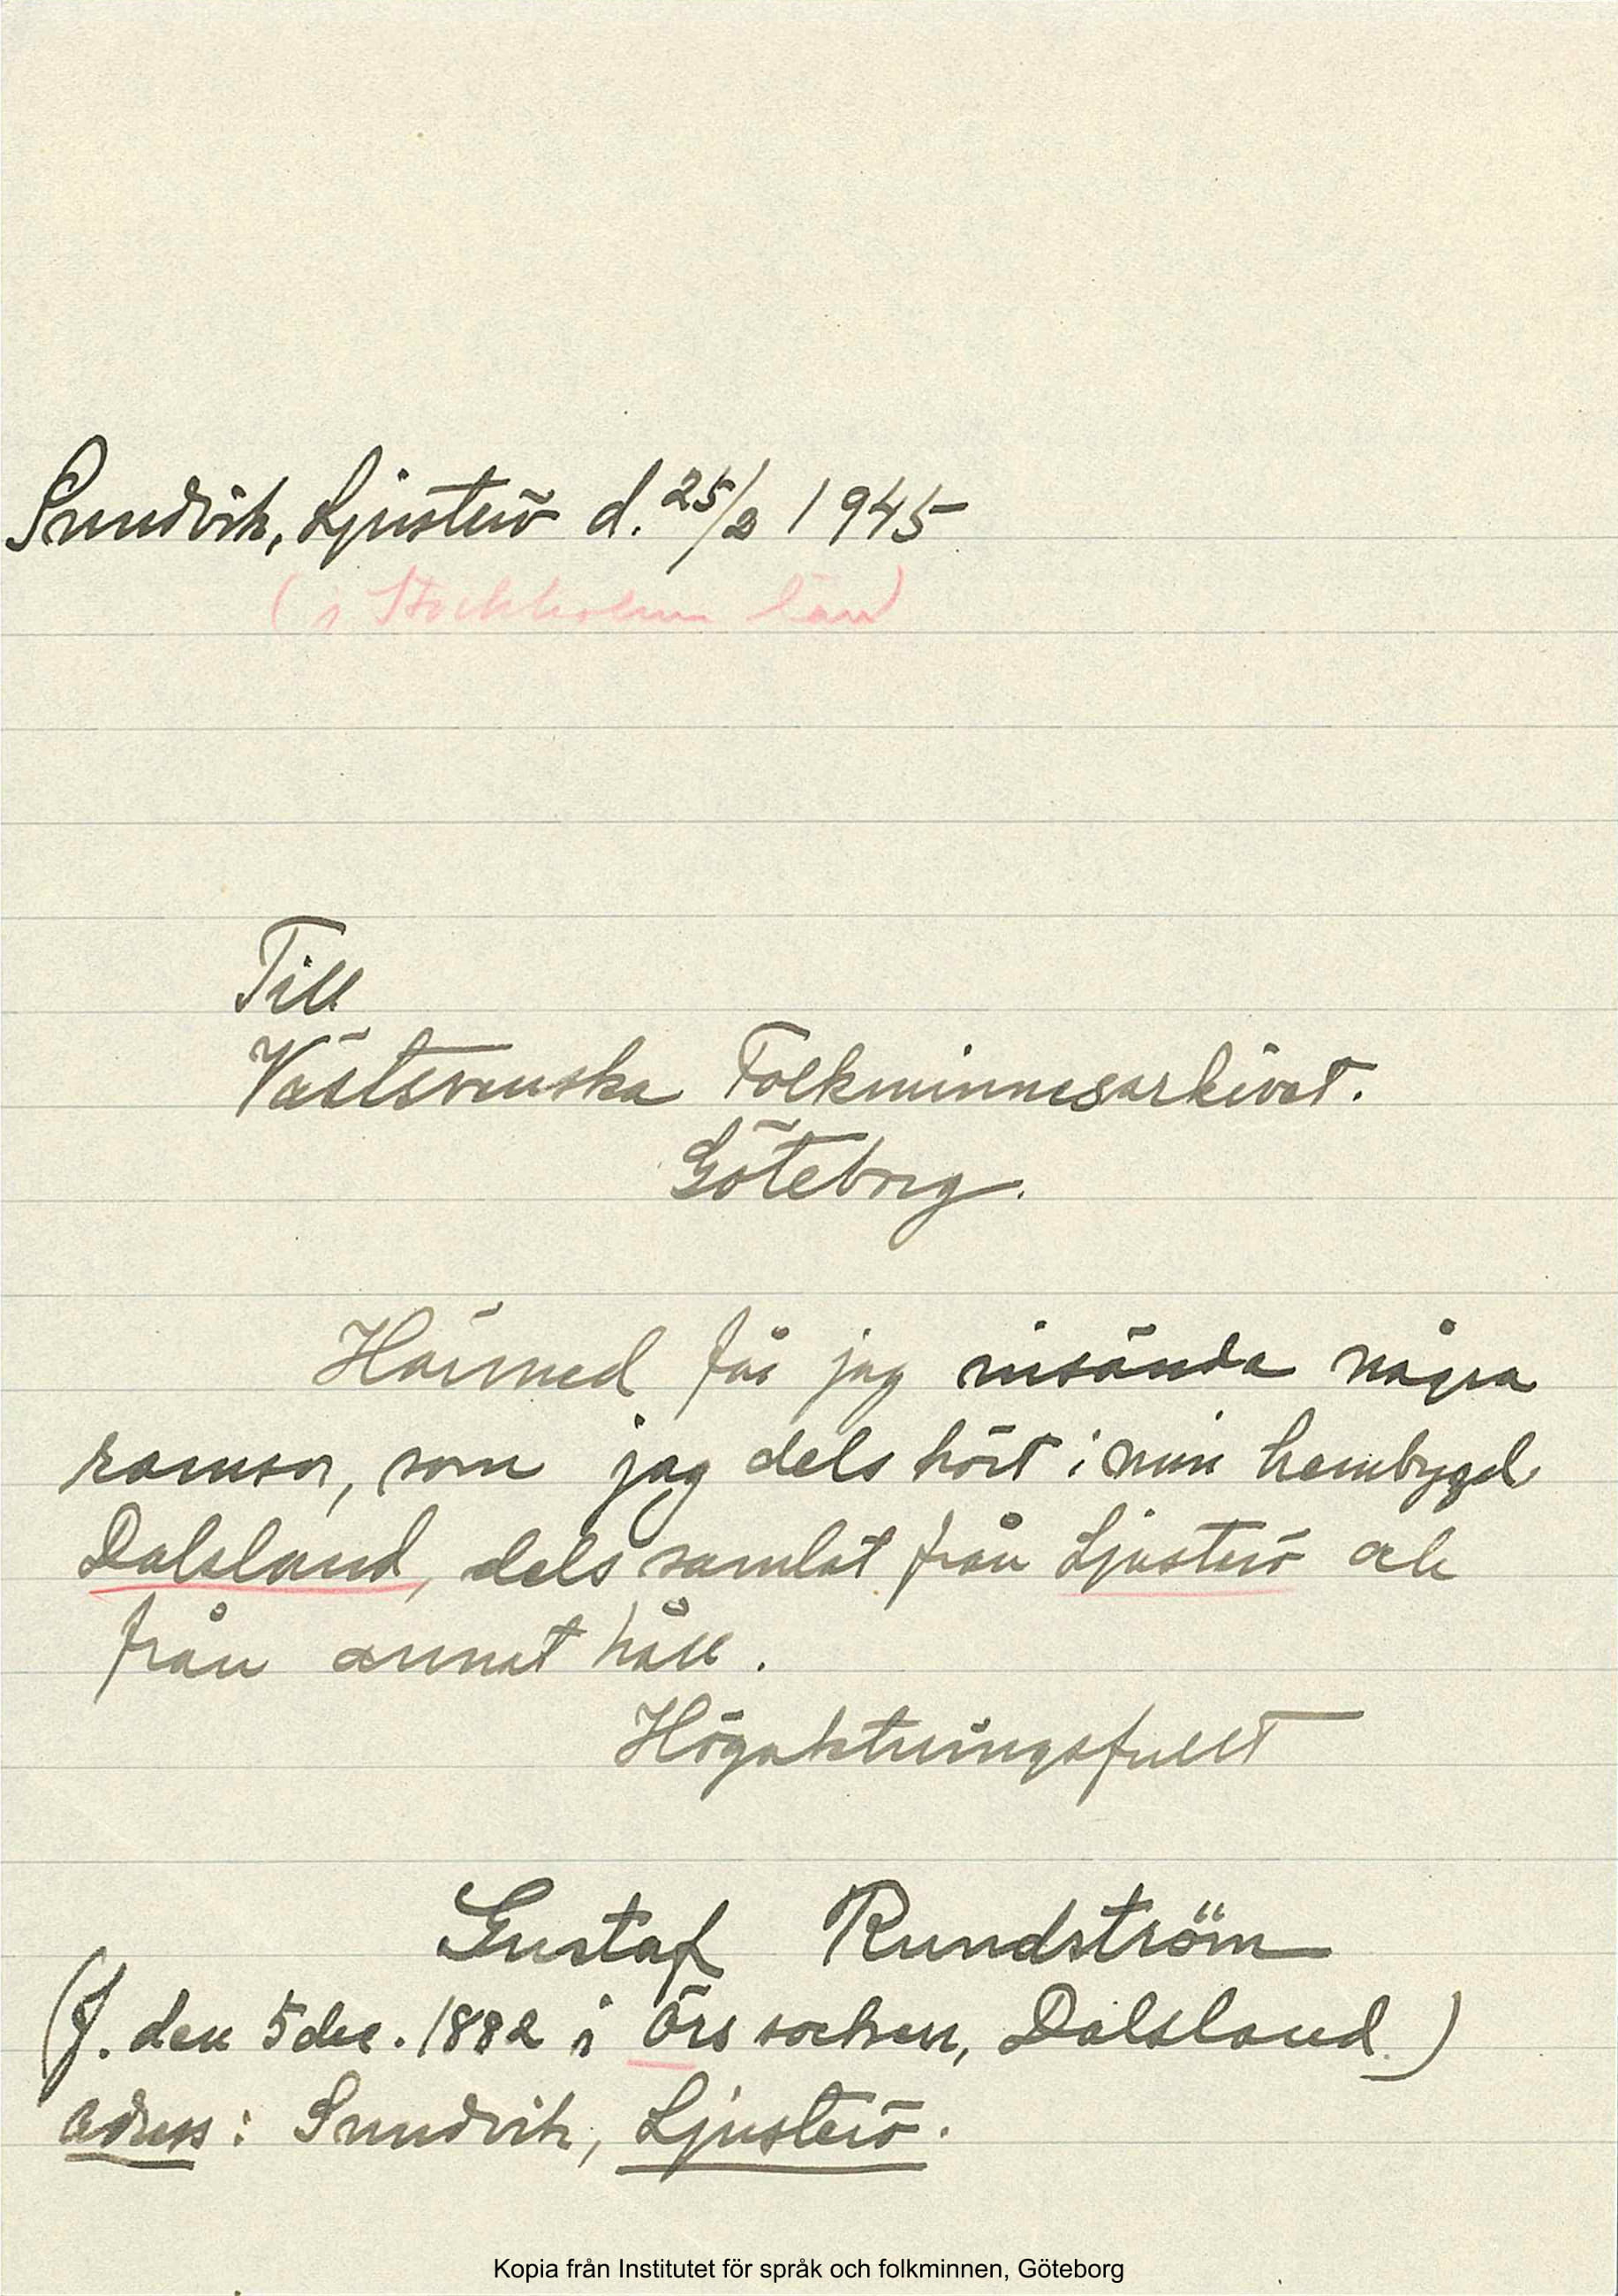 Sundvik, Ljusterö d. 25/2 1945
(i Stockholms län)
Till
Västsvenska Folkminnesarkivet.
Göteborg.
Härmed får jag insända några
ramsor, som jag dels hört i min hembygd
Dalsland, dels samlat från Ljusterö och
från annat håll.
Högaktningsfullt
Gustaf Rundström
(f. den 5 dec. 1882 i Örs socken, Dalsland.)
adress: Sundvik, Ljusterö.
Kopia från Institutet för språk och folkminnen, Göteborg